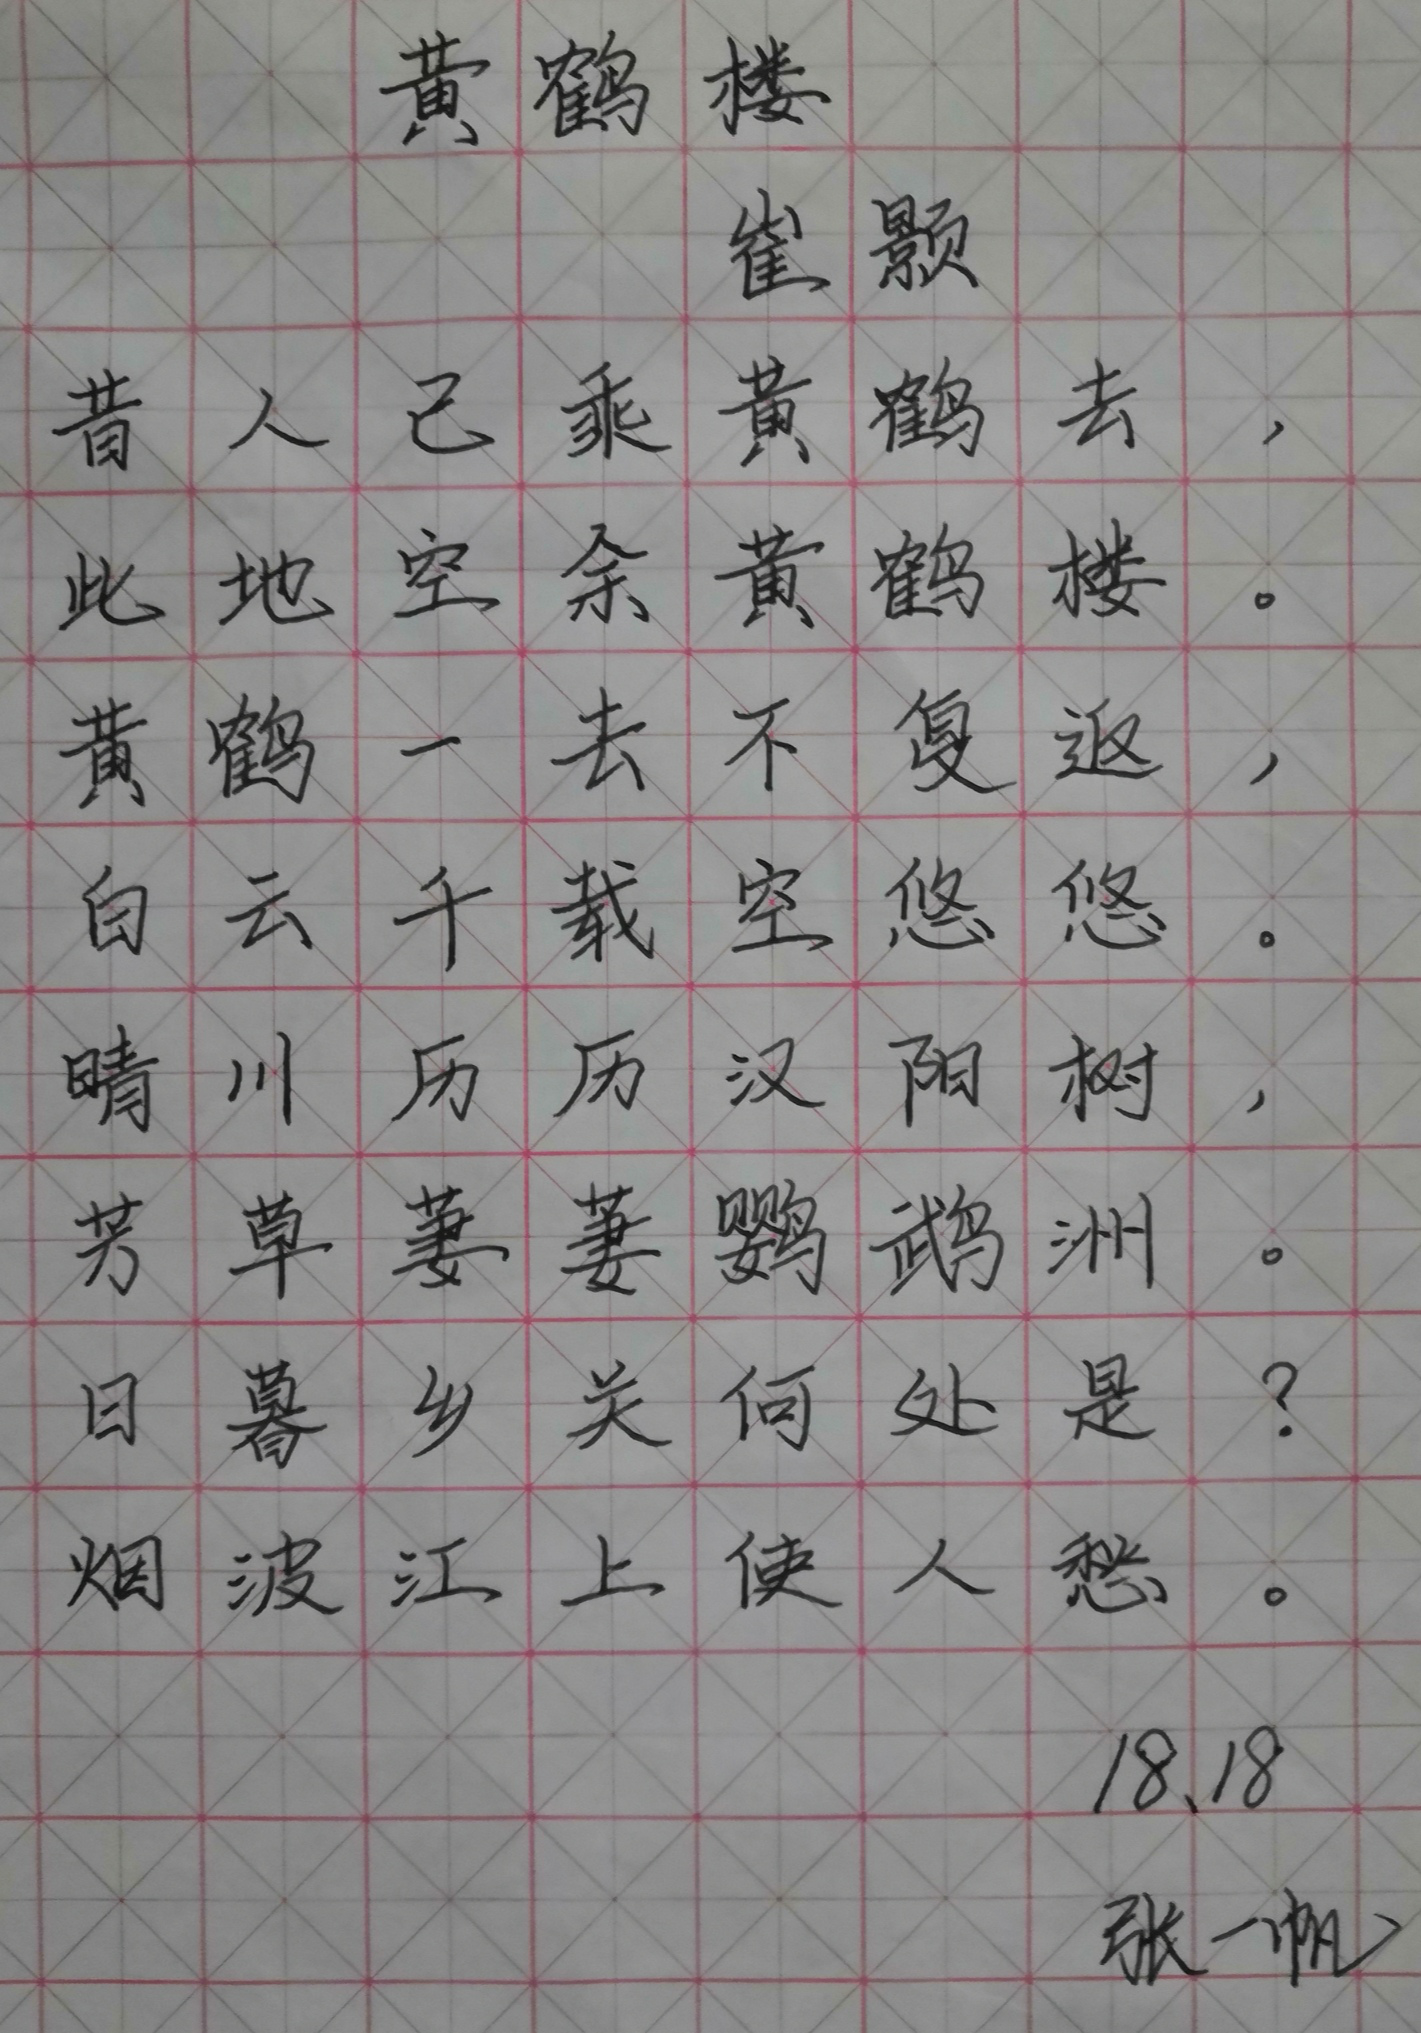 黄鹤楼
崔颢
昔人已乘黄鹤去，
此地空余黄鹤楼。
黄鹤一去不复返，
白云千载空悠悠。
晴川历历汉阳树，
芳草萋萋鹦鹉洲。
日暮乡关何处是？
烟波江上使人愁。
18、18
张一帆